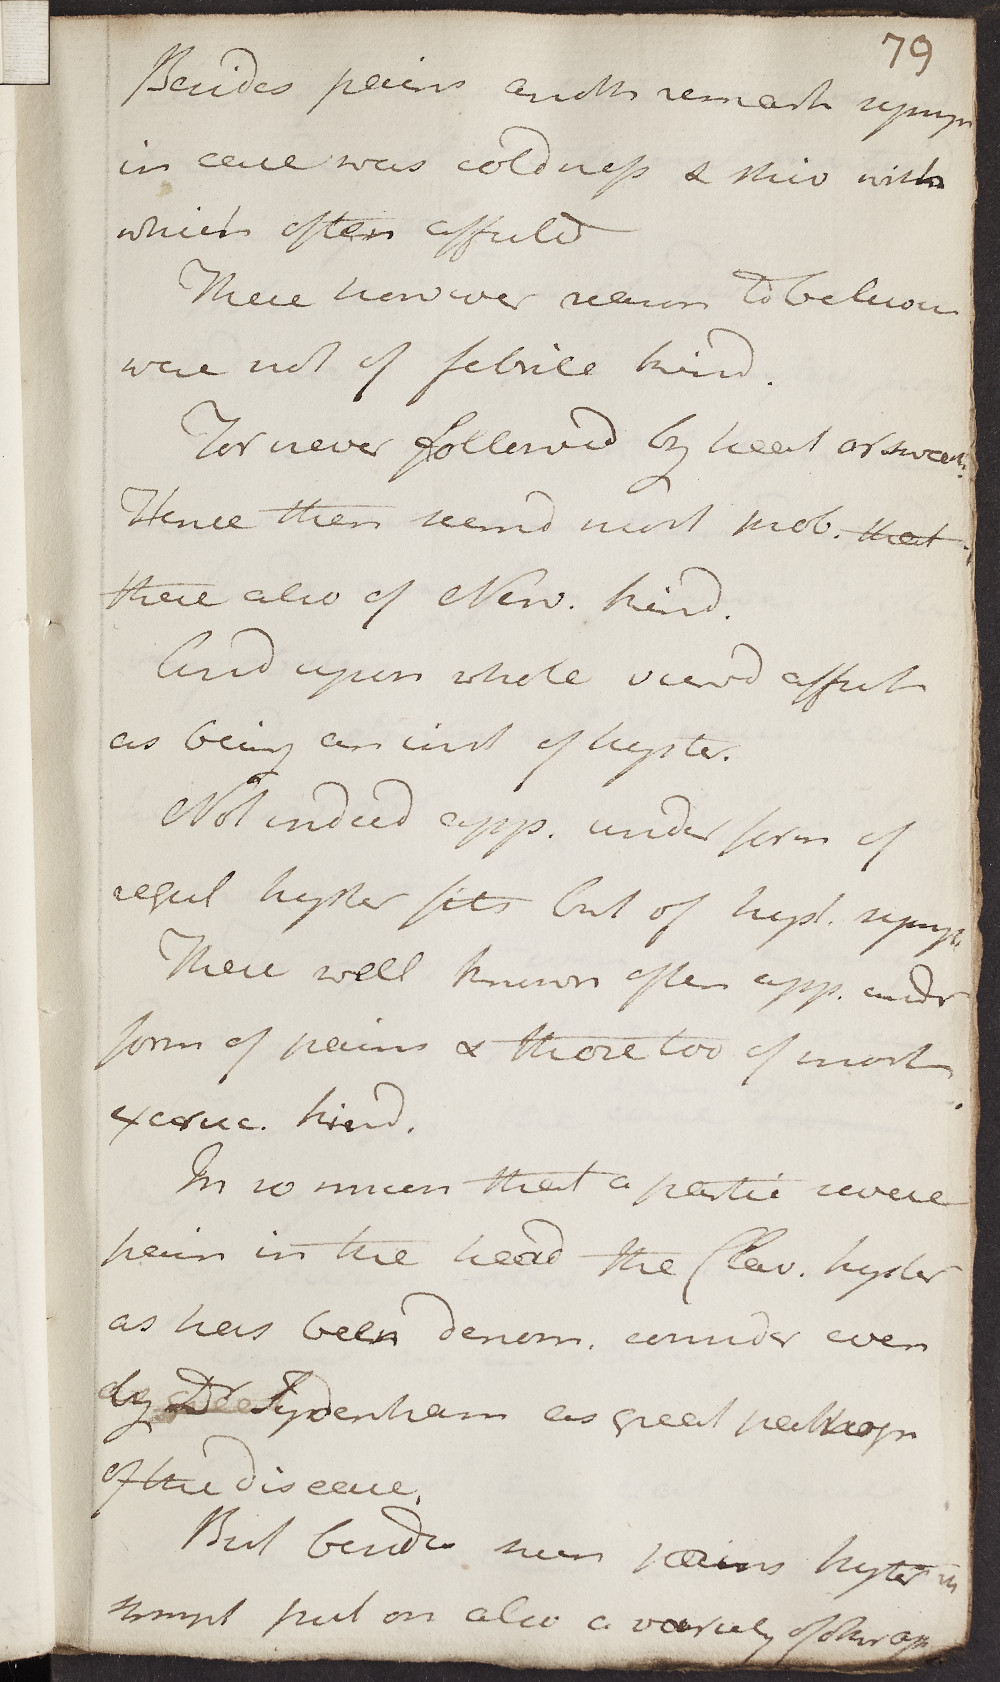 79
Besides pains anoth remark symp
in case was coldness & shiv with
which often affected
These however reason to believe
were not of febrile kind.
For never followd by heat or sweat.
Hence then seemd most prob. that
these also of Nerv. kind.
And upon whole viewd affect
as being an inst of hyster.
Not indeed app. under form of
regul hyster fits but of hyst. symp.
These well known often app. undr
form of pains & those too of most
excruc. kind.
In so much that a partic severe
pain in the head the Clav. hyster
as has been denom. consider even
by Dr Sydenham as great pathogn
of the disease.
But besides such pains hyster in
sympt put on also a variety of other app